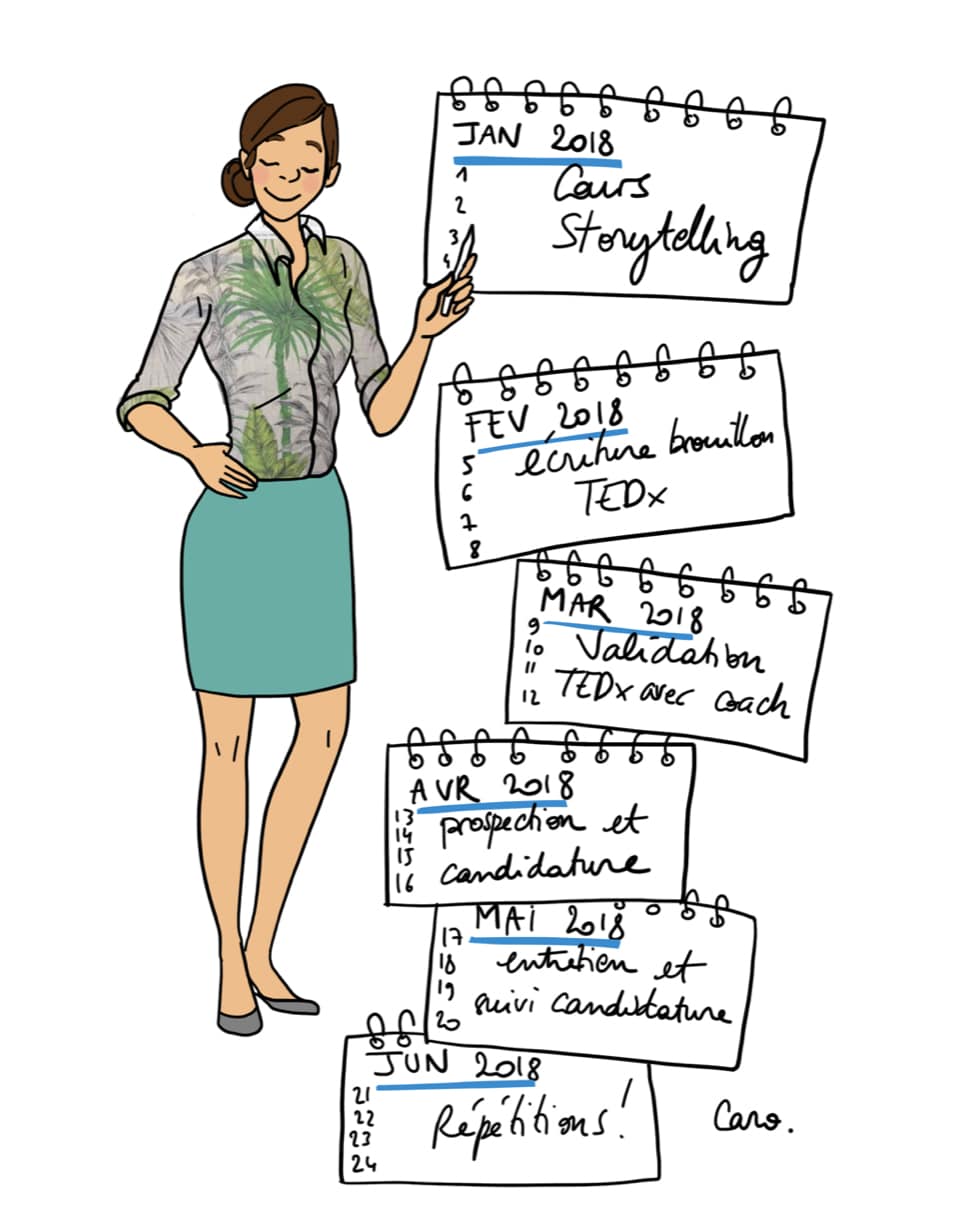 JAN 2018
1
2
3
4
Cours
Storytelling
FEV 2018
5
6
7
8
écriture brouillon
TEDx
MAR 2018
9
10
11
12
Validation
TEDx avec coach
AVR 2018
13
14
15
16
prospection et
candidature
MAI 2018
17
18
19
20
entretien et
suivi candidature
JUN 2018
21
22
23
24
Répétitions !
Caro.